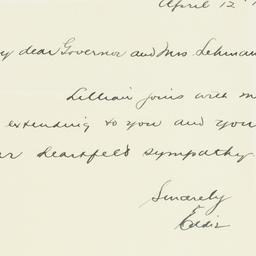 April 12
y dear Governor and Mrs. Lehman
Lillian joins with m
extending to you and you
ur heartfelt sympathy
Sincerely
Eddie